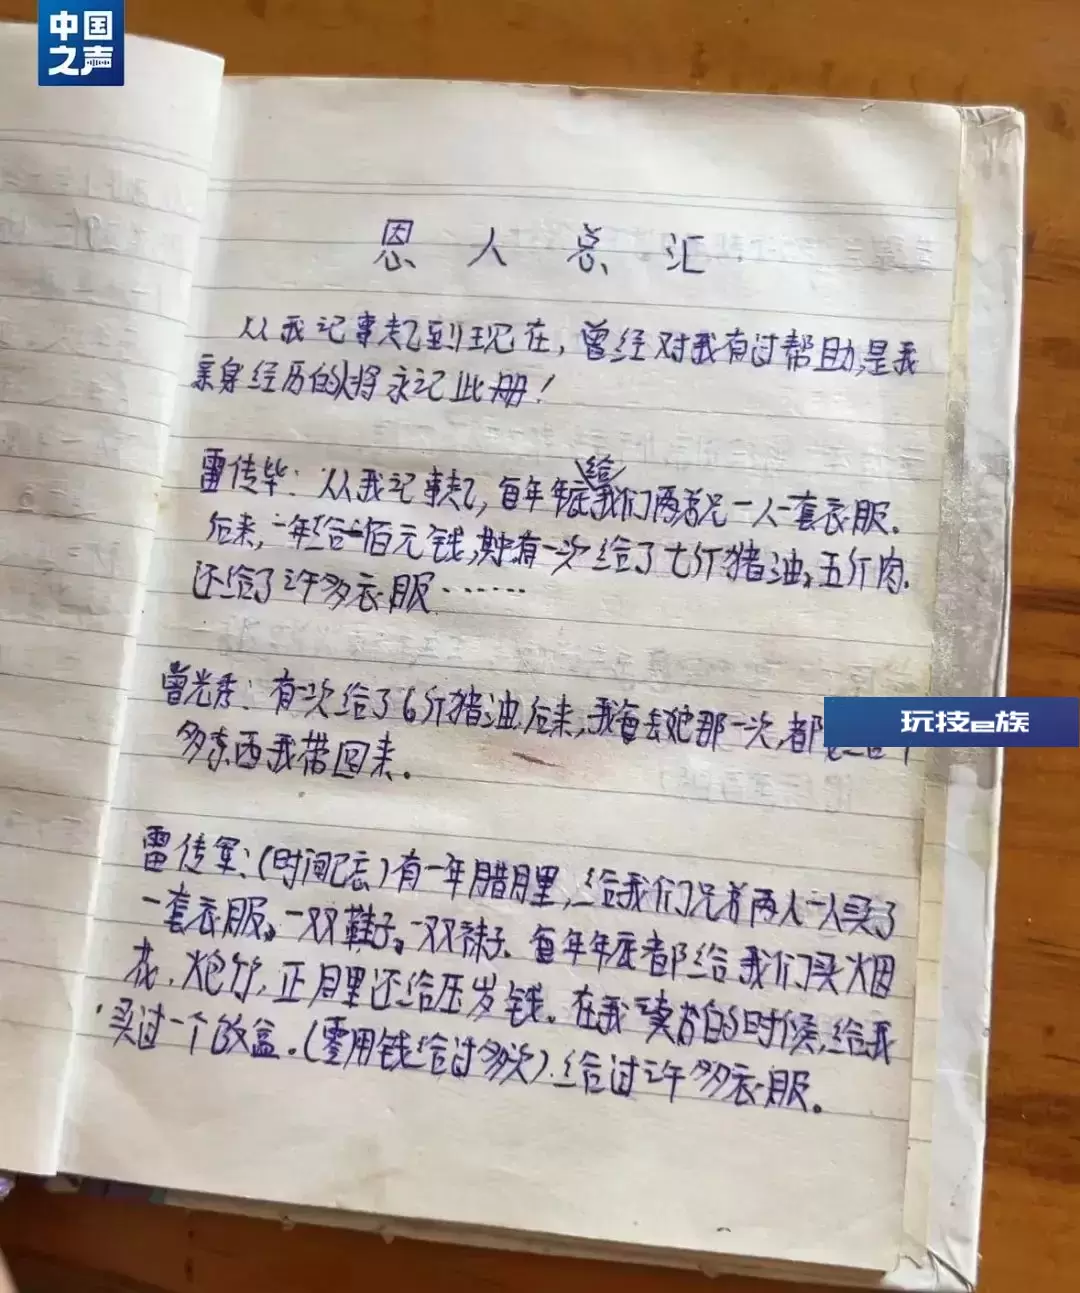 中国
之声
恩人总汇
从我记事起到现在,曾经对我有过帮助,是我
亲身经历的将永记此册!
雷传毕:从我记事起,每年年底给我们两弟兄一人一套衣服。
后来,一年给一佰元钱,其中有一次给了七斤猪油,五斤肉.
还给了许多衣服……
曾光秀:有一次给了6斤猪油.后来,我每去她那一次,都
多东西我带回来。
玩技e族
雷传军:(时间记忘)有一年腊月里,给我们兄弟两人一人买了
一套衣服。一双鞋子。一双袜子。每年年底都给我们买烟
花,炮竹,正月里还给压岁钱。在我读书的时候,给我
买过一个饭盒。(零用钱给过多次).给过许多衣服。